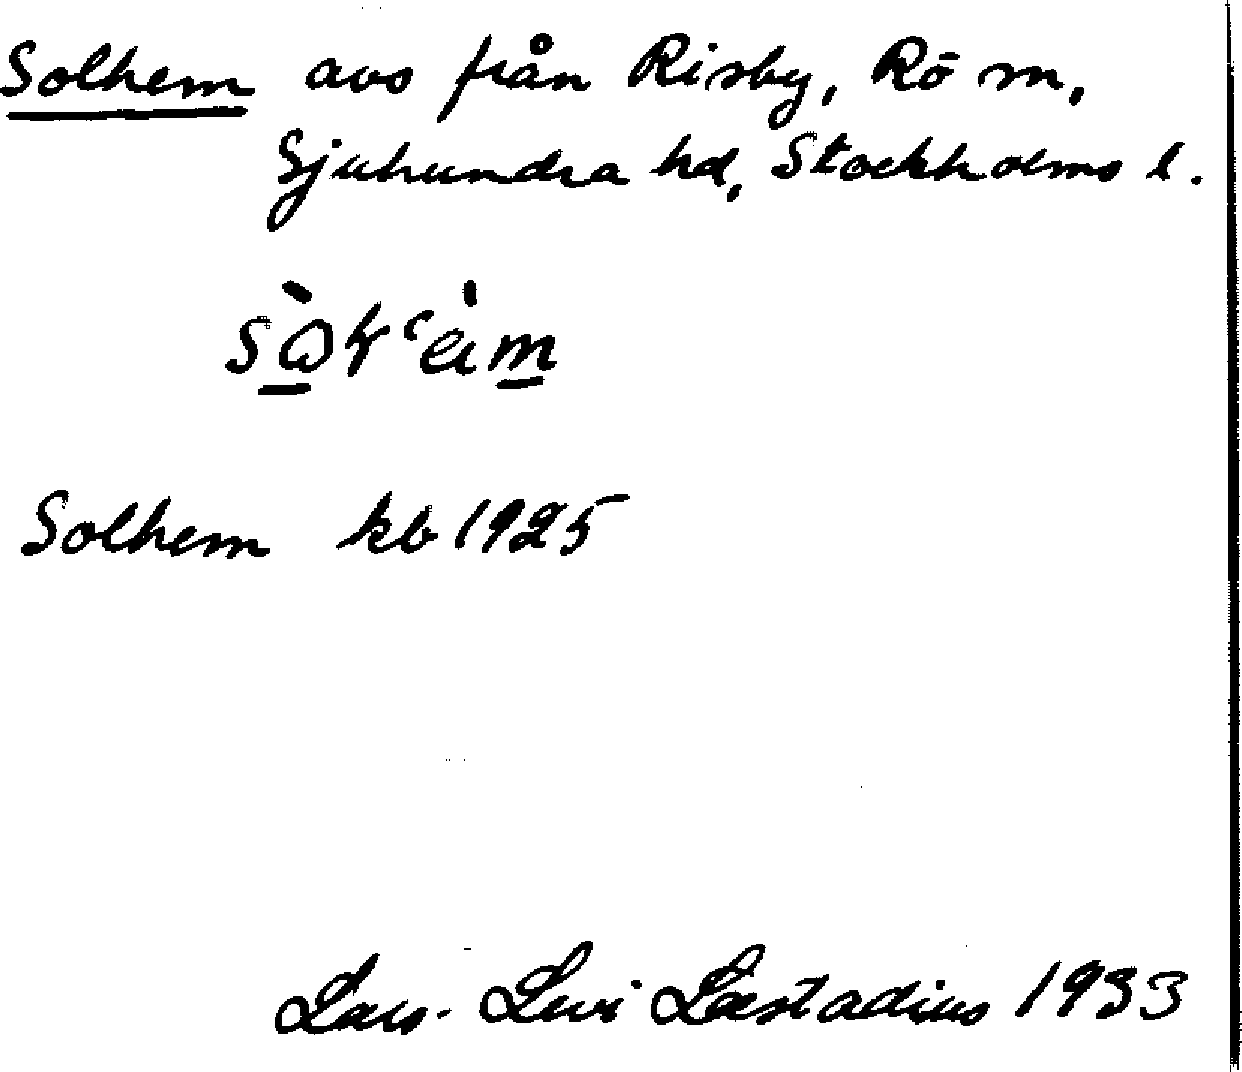 Solhem avs från Risby, Rö sn,
Sjuhundra hd, Stockholms l.
Solhem kb 1925
Lars-Levi Læstadius 1933